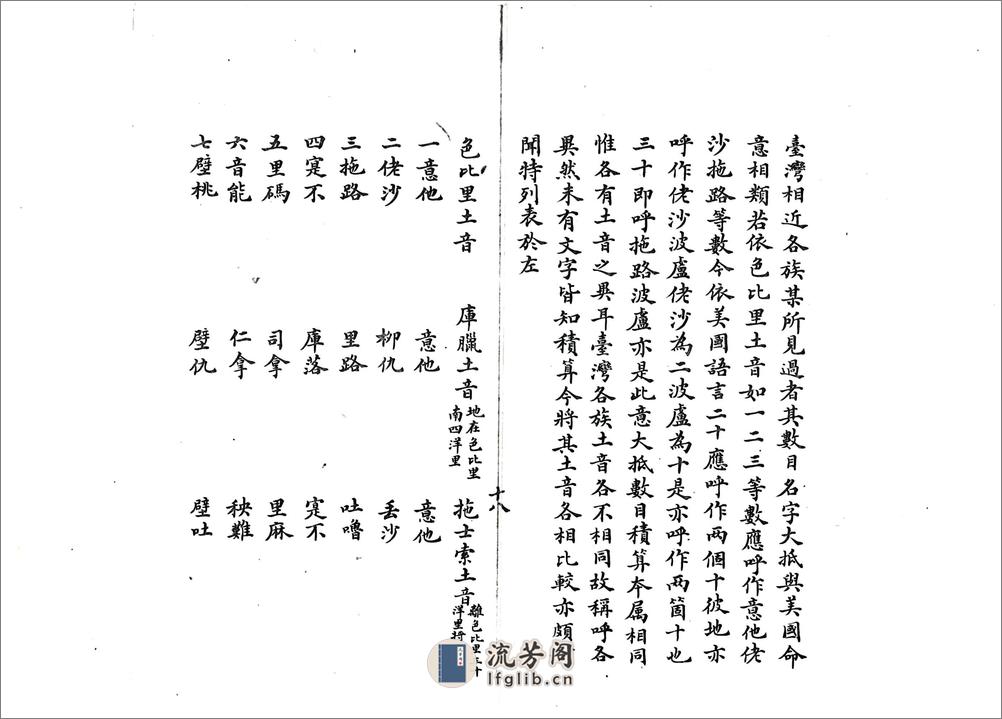 臺灣相近各族某所見過者其數目名字大抵與美國命
意相類若依色比里土音如一二三等數應呼作意他佬
沙拖路等數今依美國語言二十應呼作兩個十彼地亦
呼作佬沙波盧佬沙為二波盧為十是亦呼作兩箇十也
三十即呼拖路波盧亦是此意大抵數目積算本屬相同
惟各有土音之異耳臺灣各族土音各不相同故稱呼各
異然未有文字皆知積算今將其土音各相比較亦頗
聞特列表於左
十八
色比里土音 庫臘土音 地在色比里南四洋里 拖士索土音 離色比里三十洋里
一意他 意他 意他
二佬沙 柳仇 丢沙
三拖路 里路 吐嚕
四寔不 庫落 寔不
五里碼 司拿 里麻
六音能 仁拿 秧難
七壁桃 壁仇 壁吐
流芳阁
lfglib.cn